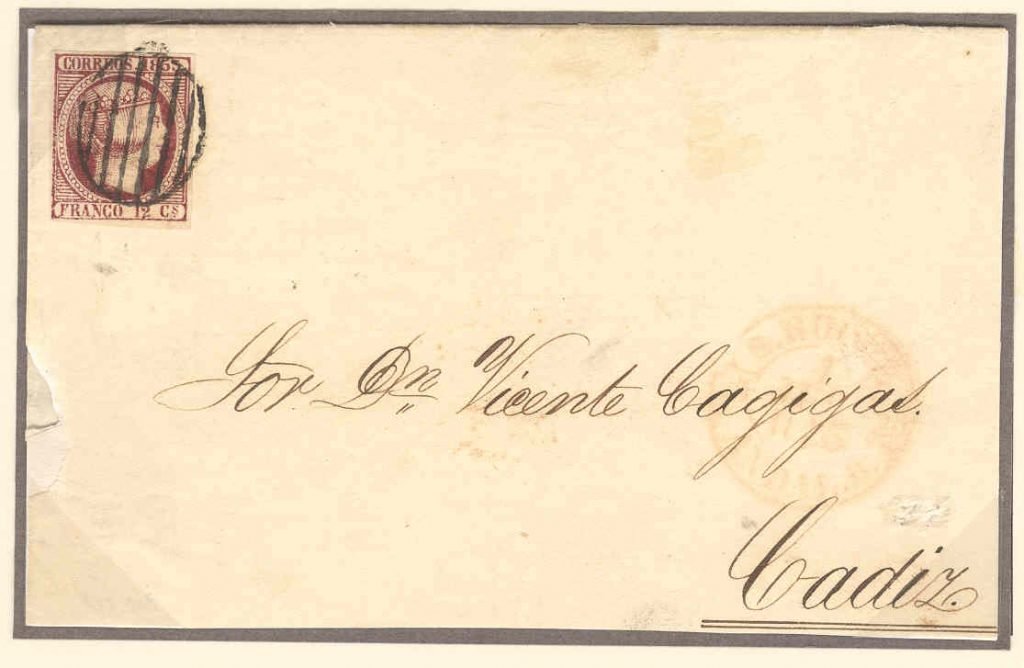 CORREOS 1853
FRANCO 12 Cs
Sor. Dn. Vicente Cagigas.
Cadiz.